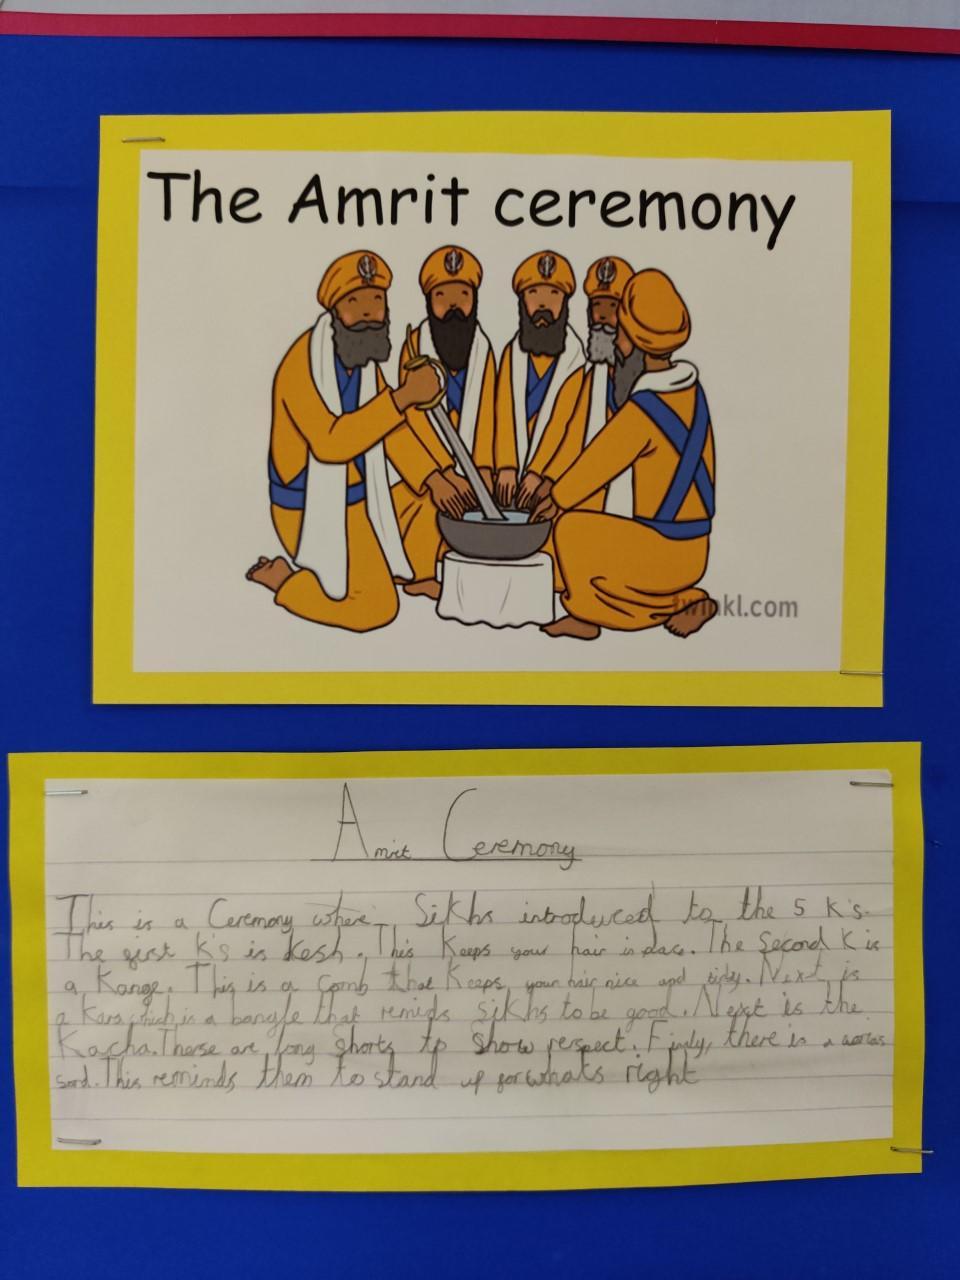 The Amrit ceremony
twinkl.com
Amrit Ceremony
This is a Ceremony where Sikhs introduced to the 5 K's.
The first K's is kesh. This Keeps your hair in place. The Second K is
a Kange. This is a comb that Keeps your hair nice and tidy. Next is
a Kara which is a bangle that reminds Sikhs to be good. Next is the
Kacha. These are long shorts to show respect. Finly, there is a
sord. This reminds them to stand up for whats right